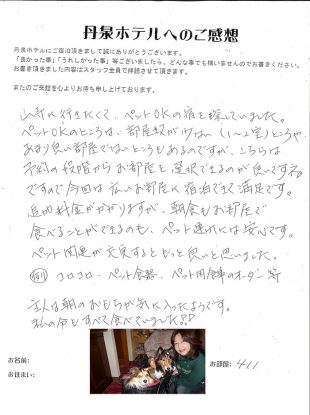 丹泉ホテルへのご感想
丹泉ホテルにご宿泊頂きまして誠にありがとうございます。
「良かった事」「うれしかった事」等ございましたら、どんな事でも構いませんのでお書きください。
お書き頂きました内容はスタッフ全員で拝読させて頂きます。
またのご来館を心よりお待ち申し上げております。
に行きたくて、ペットOKの宿を探していました。
ペットOKのところは、部屋数が少ない(1〜2室)ところや、
あまり良い部屋ではないところもあるのですが、こちらは
予約の段階からお部屋を選択できるのが良いですね
ですので今回は広いお部屋に宿泊できて満足です。
追加料金がかかりますが、朝食もお部屋で
食べることができるのも、ペット連れには安心です。
ペット関連が充実するともっと良いと思いました。
例 コロコロ・ペット食器、ペット用食事のオーダー等
主人は朝のおもちが気に入ったようです。
私の分もすべて食べていました!?
お名前:
お部屋: 411
お住まい: